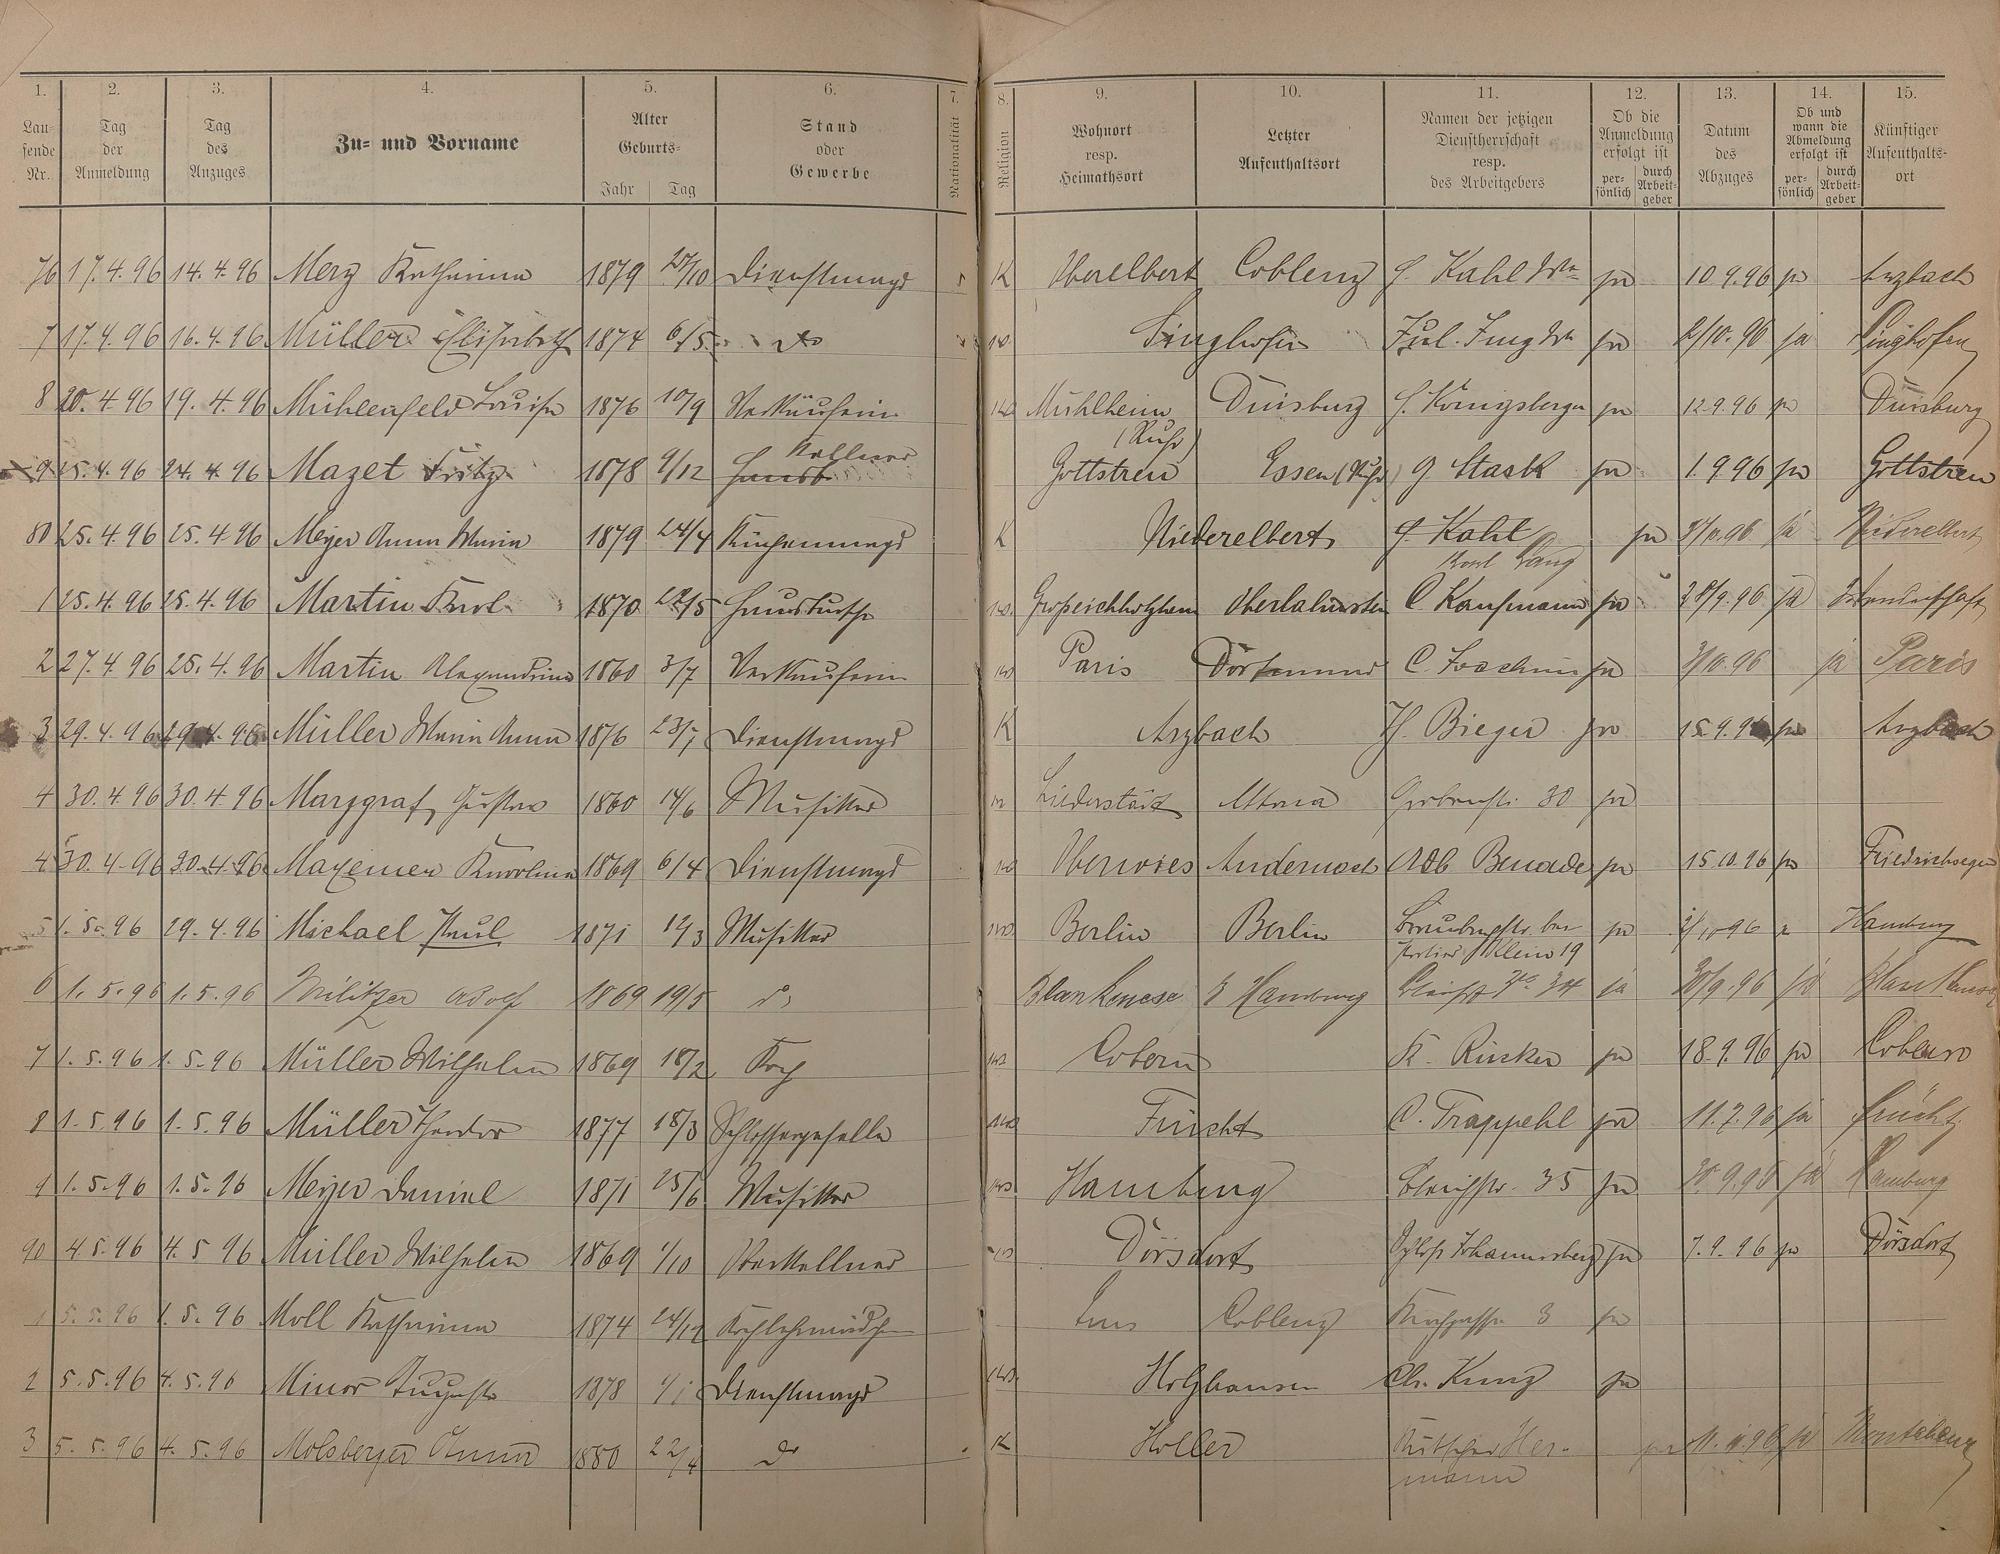 1. 2. 3. 4. 5. 6. 7. 8. 9. 10. 11. 12. 13. 14. 15.
Laufende Nr.
Tag der Anmeldung
Tag des Anzuges
Zu- und Vorname
Alter
Geburts-
Jahr Tag
Stand oder Gewerbe
Nationalität
Religion
Wohnort resp. Heimathsort
Letzter Aufenthaltsort
Namen der jetzigen Dienstherrschaft resp. des Arbeitgebers
Ob die Anmeldung erfolgt ist
persönlich durch Arbeitgeber
Datum des Abzuges
Ob und wann die Abmeldung erfolgt ist
persönlich durch Arbeitgeber
Künftiger Aufenthaltsort
76 17.4.96 14.4.96 Merz Katharina 1879 27/10 Dienstmagd K Oberelbert Coblenz Kahl ja 10.9.96 ja Arzbach
7 17.4.96 16.4.96 Müller Elisabeth 1874 6/5 do Singhofen Jul. Jung ja 2/10.96 ja Singhofen
8 20.4.96 19.4.96 Mühlenfeld Louise 1876 10/9 Verkäuferin Mühlheim (Ruhr) Duisburg Königsberger ja 12.9.96 ja Duisburg
9 25.4.96 24.4.96 Mazet Fritz 1878 9/12 Hausb. Kellner Gottstreu Essen (Ruhr) Stask ja 1.9.96 ja Gottstreu
80 25.4.96 25.4.96 Meyer Anna Maria 1879 24/4 Küchenmagd K Niederelbert Kahl Karl Lang ja ja Niederelbert
1 25.4.96 25.4.96 Martin Karl 1870 22/5 Hausbursche Großeichholzheim Oberlahnstein C. Kaufmann ja 28/9.96 ja
2 27.4.96 25.4.96 Martin Alexandrine 1860 3/7 Verkäuferin Paris Dortmund C. Joachim ja ja Paris
3 29.4.96 29.4.96 Müller Maria Anna 1876 23/1 Dienstmagd K Arzbach H. Bieger ja 15.9.96 ja Arzbach
4 30.4.96 30.4.96 Marggraf Gustav 1860 14/6 Musiker Liederstädt Altona Grabenstr. 30 ja
4 30.4.96 30.4.96 Karoline 1869 6/4 Dienstmagd Oberwies Andernach Adb Benade ja 15.10.96 ja Friedrichsegen
5 1.5.96 29.4.96 Michael Paul 1871 12/3 Musiker Berlin Berlin Klein 19 ja Hamburg
6 1.5.96 1.5.96 Militzer Adolf 1869 19/5 do Blankenese Hamburg 34 ja 30/9.96 ja Blankenese
7 1.5.96 1.5.96 Müller Wilhelm 1869 18/2 Koch Cobern K. Rücker ja 18.9.96 ja Cobern
8 1.5.96 1.5.96 Müller Theodor 1877 18/3 Schlossergeselle Frücht C. Trappehl ja 11.7.96 ja Frücht
9 1.5.96 1.5.96 Meyer Daniel 1871 25/6 Musiker Hamburg Bleichstr. 35 ja 30.9.96 ja Hamburg
90 4.5.96 4.5.96 Müller Wilhelm 1869 1/10 Oberkellner Dörsdorf Schloß Johannisberg ja 7.9.96 ja Dörsdorf
1 5.5.96 1.5.96 Moll Katharina 1874 24/12 Kochlehrmädchen Ems Coblenz Kirchgasse 3 ja
2 5.5.96 4.5.96 Minor Auguste 1878 1/1 Dienstmagd Holzhausen Chr. Kunz ja
3 5.5.96 4.5.96 Molsberger Anna 1880 22/4 do K Holler Kutscher Hermann ja ja Montabaur